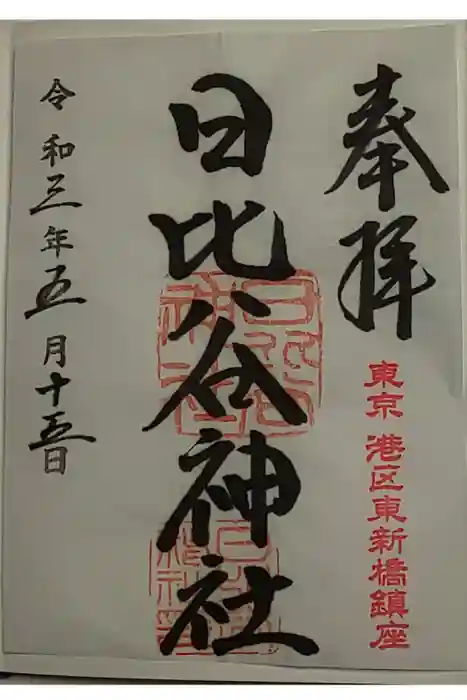 奉拝
東京 港区東新橋鎮座
日比谷神社
令和三年五月十五日
日比谷神社